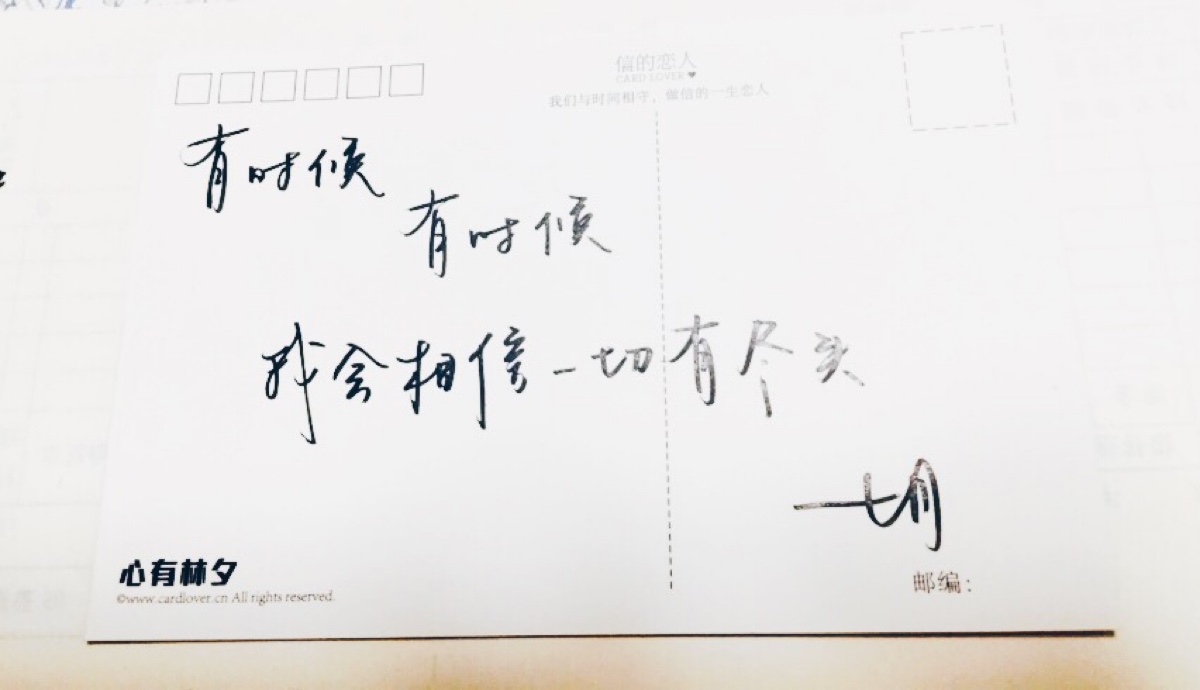 信的恋人
CARD LOVER
我们与时间相守，做信的一生恋人
有时候
有时候
我会相信一切有尽头
心有林夕
©www.cardlover.cn All rights reserved.
邮编：